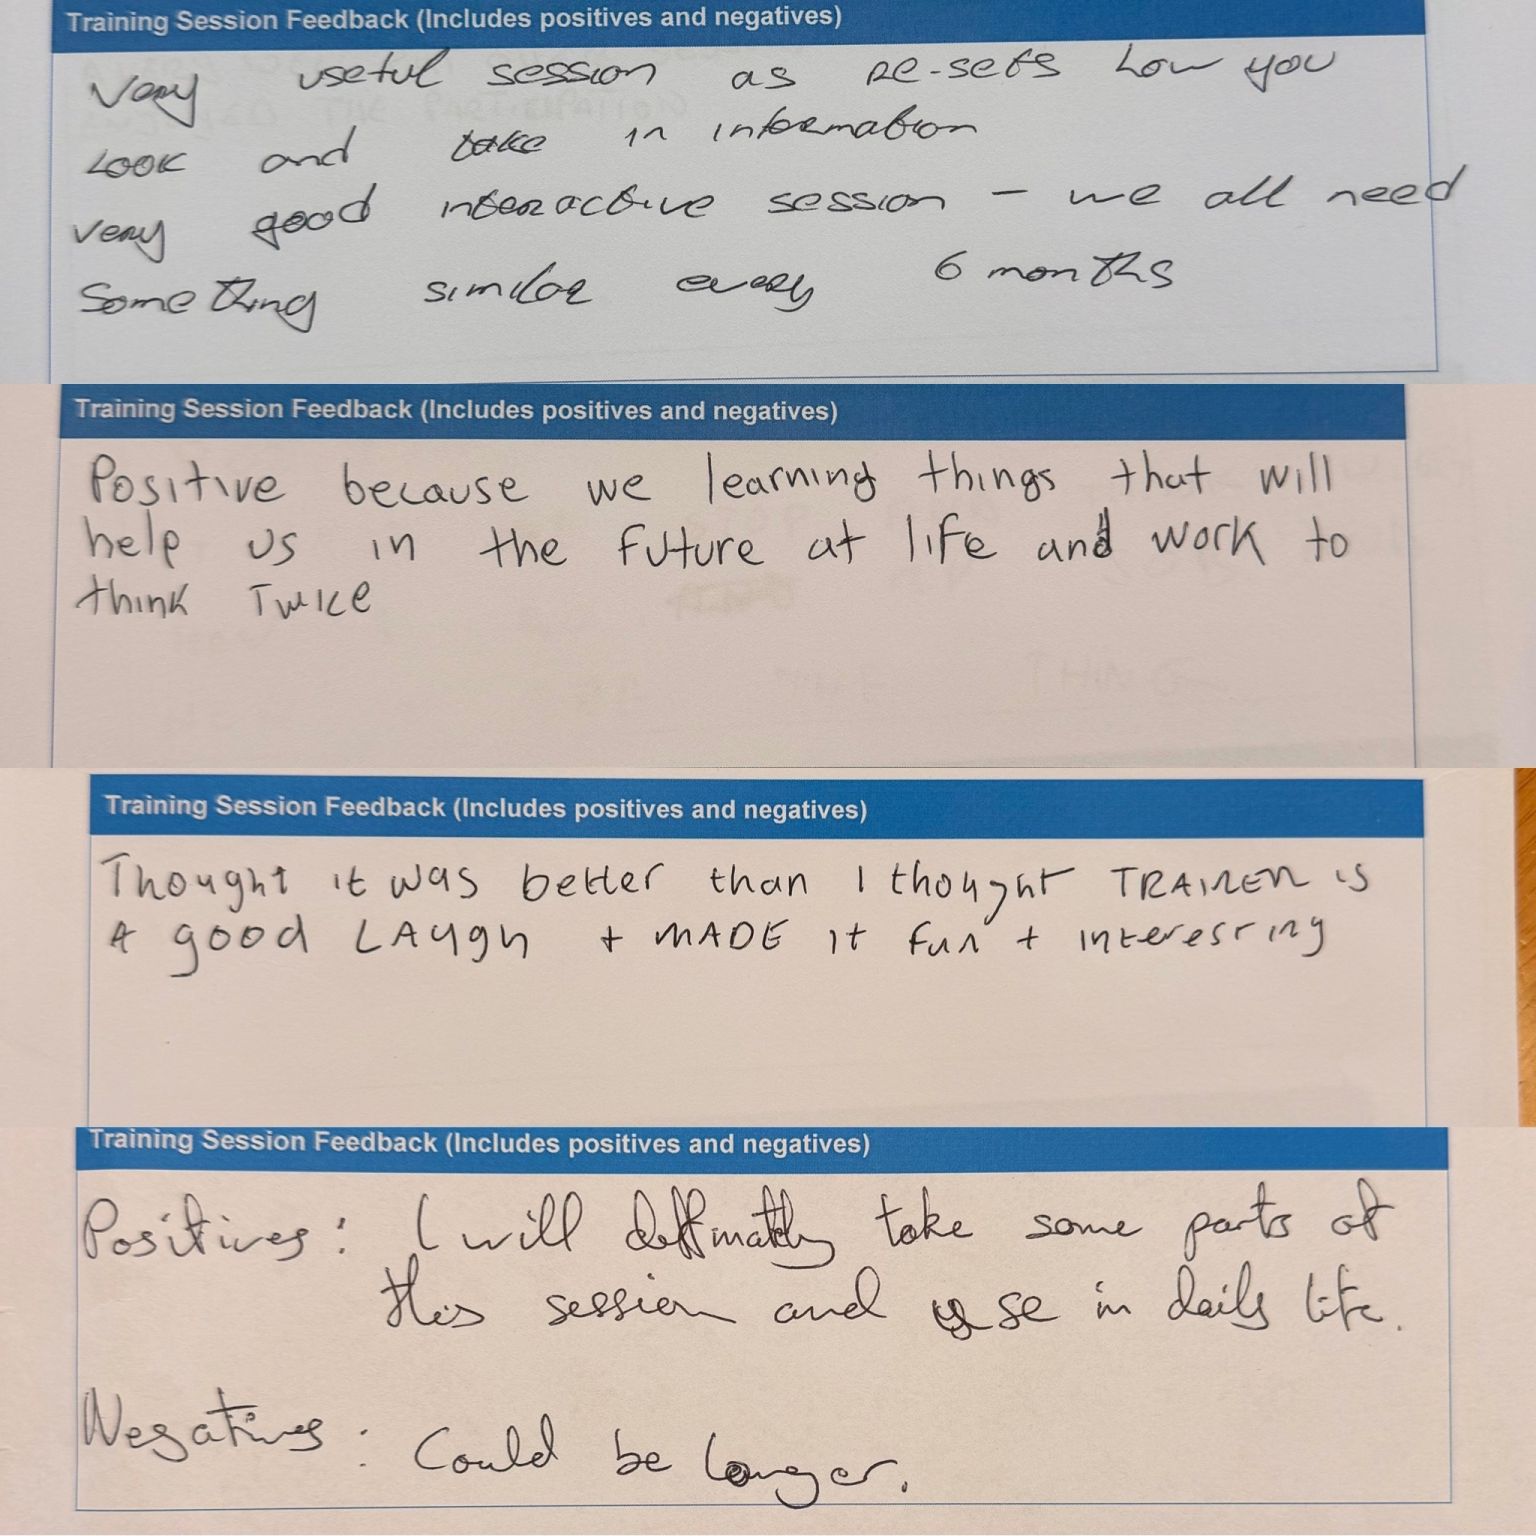 Training Session Feedback (Includes positives and negatives)
Very useful session as re-sets how you
look and take in information
very good interactive session - we all need
Something similar every 6 months
Training Session Feedback (Includes positives and negatives)
Positive because we learning things that will
help us in the future at life and work to
think Twice
Training Session Feedback (Includes positives and negatives)
Thought it was better than I thought TRAINER is
A good LAugh + MADE it fun + interesting
Training Session Feedback (Includes positives and negatives)
Positives: I will deffinatly take some parts of
this session and use in daily life.
Negatives: Could be longer.